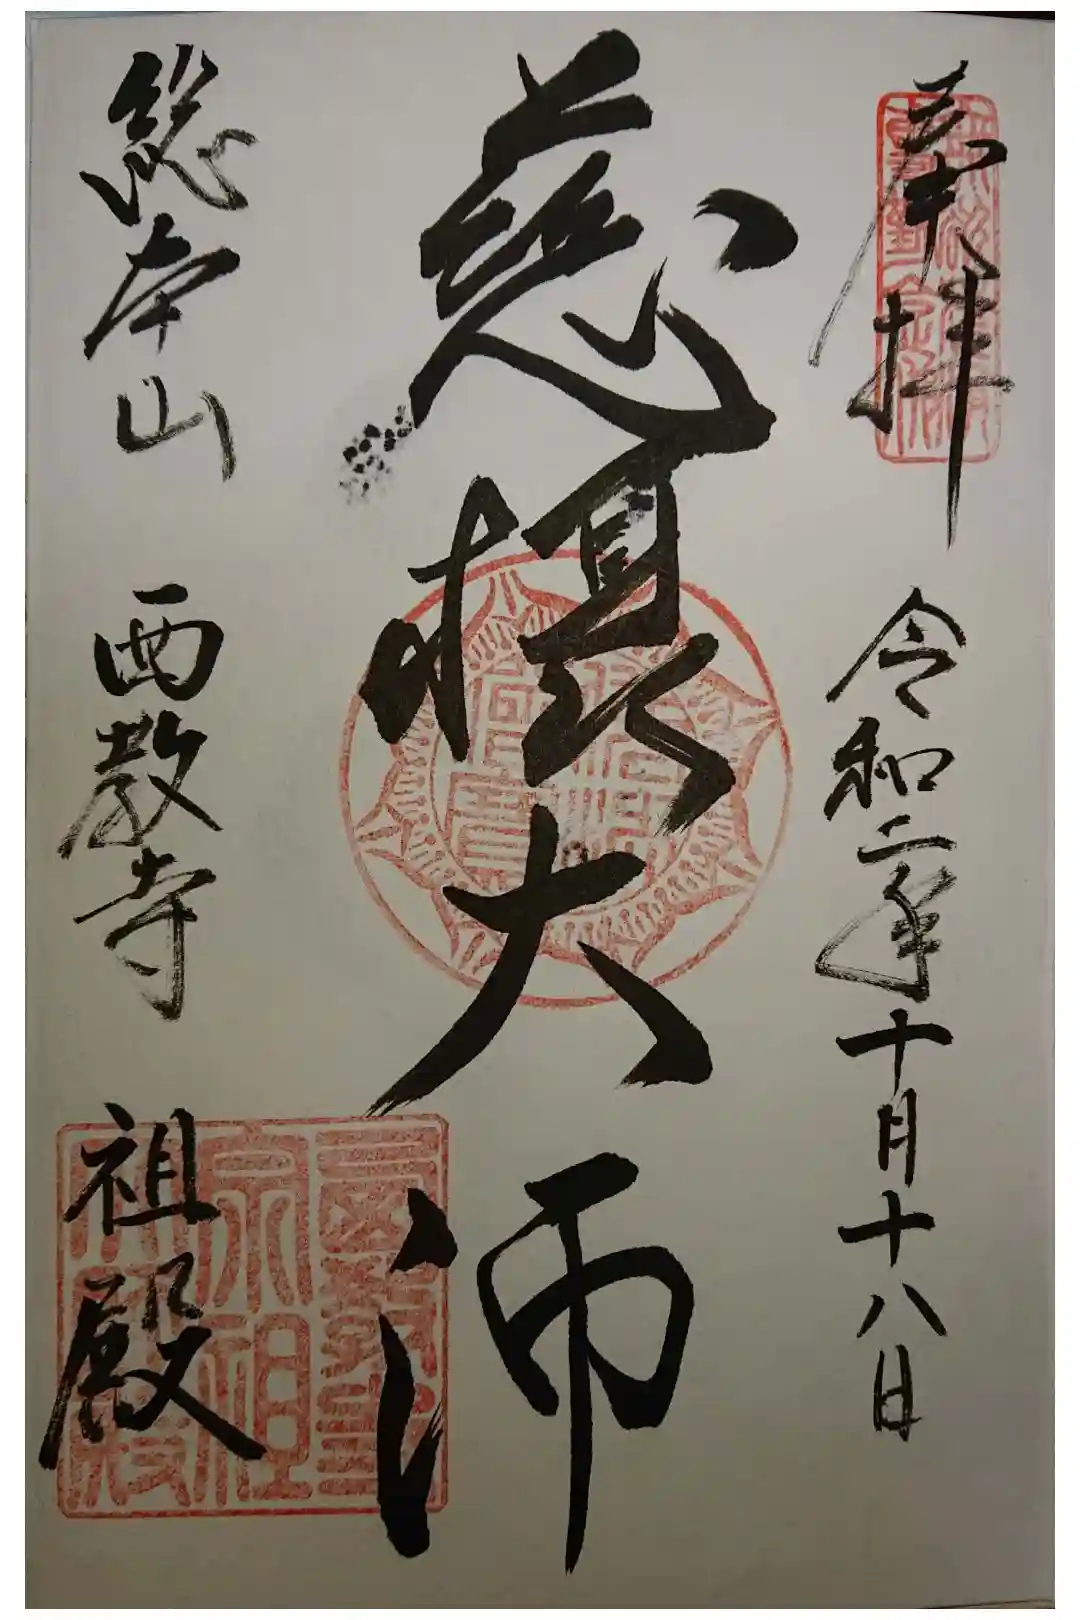 奉拝
令和二年十月十八日
慈摂大師
総本山 西教寺 祖殿